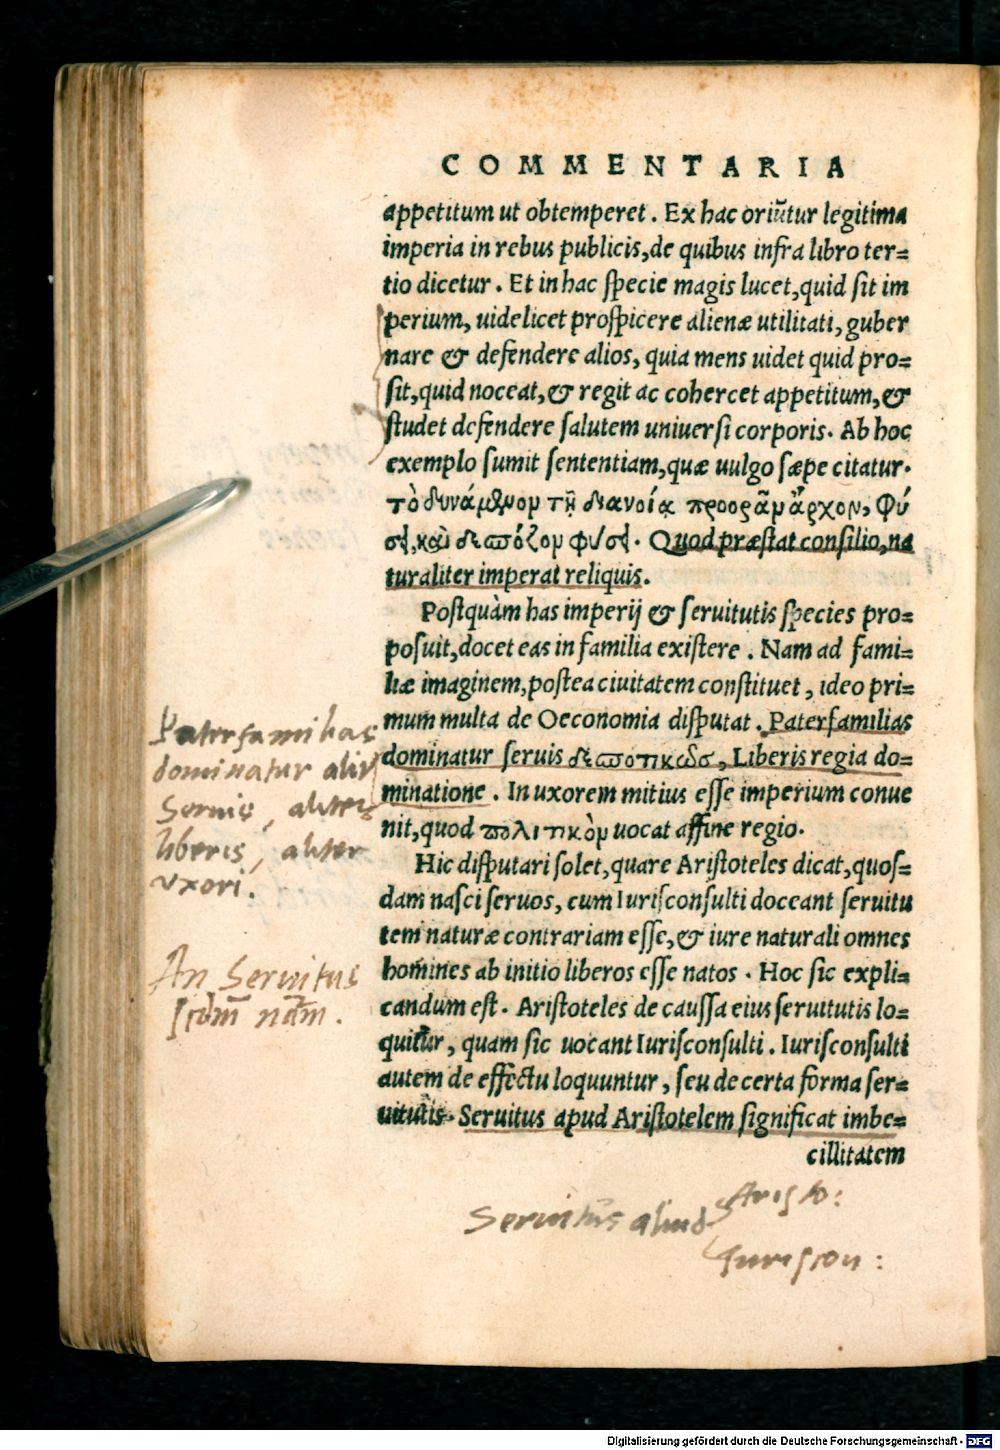 COMMENTARIA
appetitum ut obtemperet. Ex hac oriũtur legitima
imperia in rebus publicis, de quibus infra libro ter=
tio dicetur. Et in hac specie magis lucet, quid sit im
perium, uidelicet prospicere alienæ utilitati, guber
nare & defendere alios, quia mens uidet quid pro=
sit, quid noceat, & regit ac cohercet appetitum, &
studet defendere salutem uniuersi corporis. Ab hoc
exemplo sumit sententiam, quæ uulgo sæpe citatur.
τὸ δυνάμενον τῇ διανοίᾳ προορᾶν ἄρχον, φύ
σει, καὶ δεσπόζον φύσει. Quod præstat consilio, na
turaliter imperat reliquis.
Postquàm has imperij & seruitutis species pro=
posuit, docet eas in familia existere. Nam ad fami=
liæ imaginem, postea ciuitatem constituet, ideo pri=
mum multa de Oeconomia disputat. Paterfamilias
dominatur seruis δεσποτικῶσ, Liberis regia do=
minatione. In uxorem mitius esse imperium conue
nit, quod πολιτικὸν uocat affine regio.
Hic disputari solet, quare Aristoteles dicat, quos=
dam nasci seruos, cum Iurisconsulti doceant seruitu
tem naturæ contrariam esse, & iure naturali omnes
homines ab initio liberos esse natos. Hoc sic expli=
candum est. Aristoteles de caussa eius seruitutis lo=
quitur, quam sic uocant Iurisconsulti. Iurisconsulti
autem de effectu loquuntur, seu de certa forma ser=
uitutis. Seruitus apud Aristotelem significat imbe=
cillitatem
Paterfamilias
dominatur alir
Seruis, aliter
liberis, aliter
vxori.
An Seruitus
scdm natm.
Seruitus aliud
Aristo:
Iuriscon:
Digitalisierung gefördert durch die Deutsche Forschungsgemeinschaft - DFG